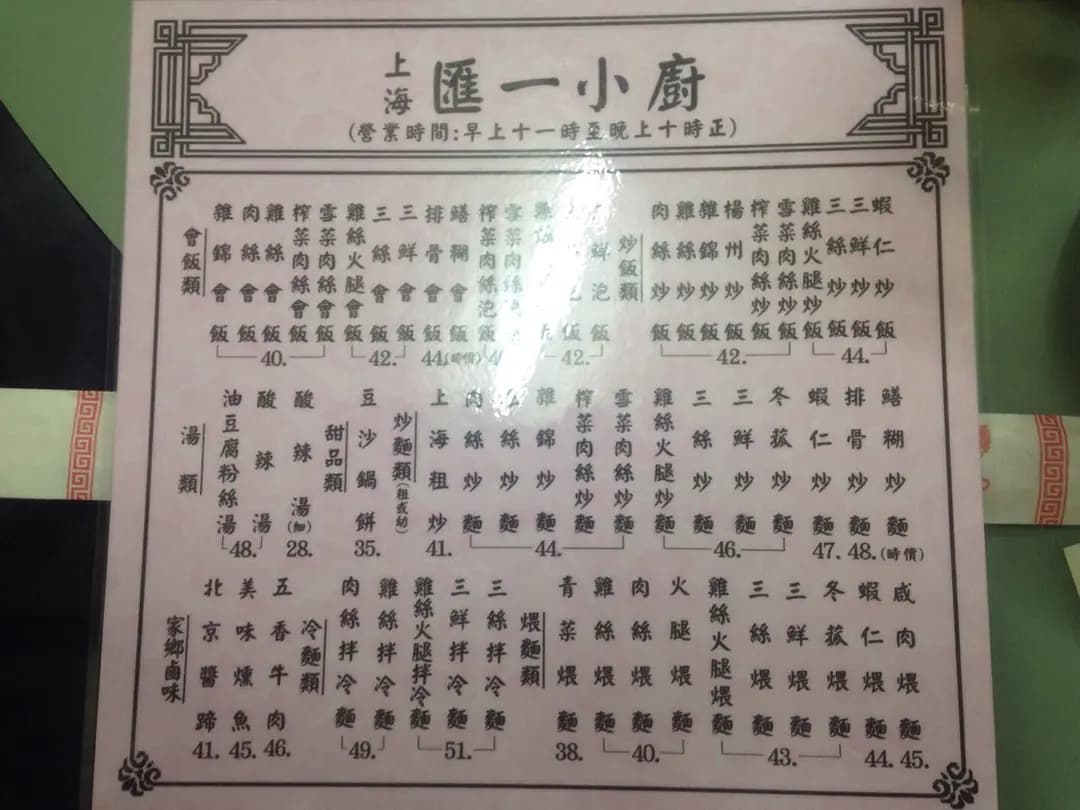 上海
匯一小廚
(營業時間:早上十一時至晚上十時正)
會飯類
雜錦會飯
肉絲會飯
雞絲會飯
榨菜肉絲會飯
雪菜肉絲會飯
40.
雞絲火腿會飯
三絲會飯
三鮮會飯
42.
排骨會飯
44.
鱔糊會飯
(時價)
榨菜肉絲泡飯
雪菜肉絲
飯
鮮泡飯
42.
炒飯類
肉絲炒飯
雞絲炒飯
雜錦炒飯
楊州炒飯
榨菜肉絲炒飯
雪菜肉絲炒飯
42.
雞絲火腿炒飯
三絲炒飯
三鮮炒飯
蝦仁炒飯
44.
湯類
油豆腐粉絲湯
酸辣湯
48.
酸辣湯(細)
28.
甜品類
豆沙鍋餅
35.
炒麵類(粗或幼)
上海粗炒
41.
肉絲炒麵
絲炒麵
雜錦炒麵
榨菜肉絲炒麵
雪菜肉絲炒麵
44.
雞絲火腿炒麵
三絲炒麵
三鮮炒麵
冬菰炒麵
46.
蝦仁炒麵
47.
排骨炒麵
48.
鱔糊炒麵
(時價)
家鄉鹵味
北京醬蹄
41.
美味燻魚
45.
五香牛肉
46.
冷麵類
肉絲拌冷麵
雞絲拌冷麵
49.
雞絲火腿拌冷麵
三鮮拌冷麵
三絲拌冷麵
51.
煨麵類
青菜煨麵
38.
雞絲煨麵
肉絲煨麵
火腿煨麵
40.
雞絲火腿煨麵
三絲煨麵
三鮮煨麵
冬菰煨麵
43.
蝦仁煨麵
44.
咸肉煨麵
45.